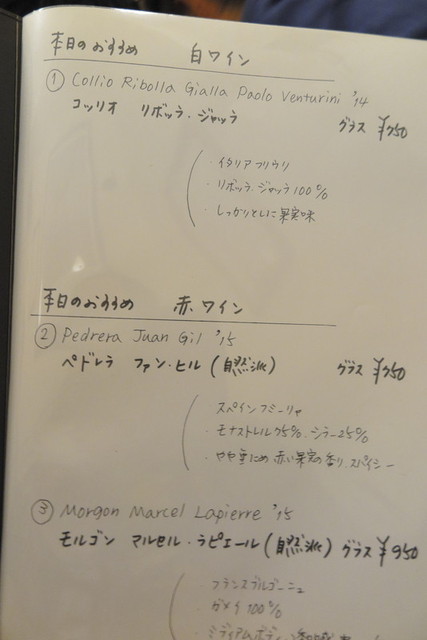 本日のおすすめ 白ワイン
① Collio Ribolla Gialla Paolo Venturini '14
コッリオ リボッラ・ジャッラ グラス ¥750
・イタリア フリウリ
・リボッラ・ジャッラ 100%
・しっかりとした果実味
本日のおすすめ 赤ワイン
② Pedrera Juan Gil '15
ペドレラ ファン・ヒル (自然派) グラス ¥750
スペイン フミーリャ
・モナストレル75%・シラー25%
・やや重ため 赤い果実の香り、スパイシー
③ Morgon Marcel Lapierre '15
モルゴン マルセル・ラピエール (自然派) グラス ¥950
・フランスブルゴーニュ
・ガメイ 100%
・ミディアムボディ